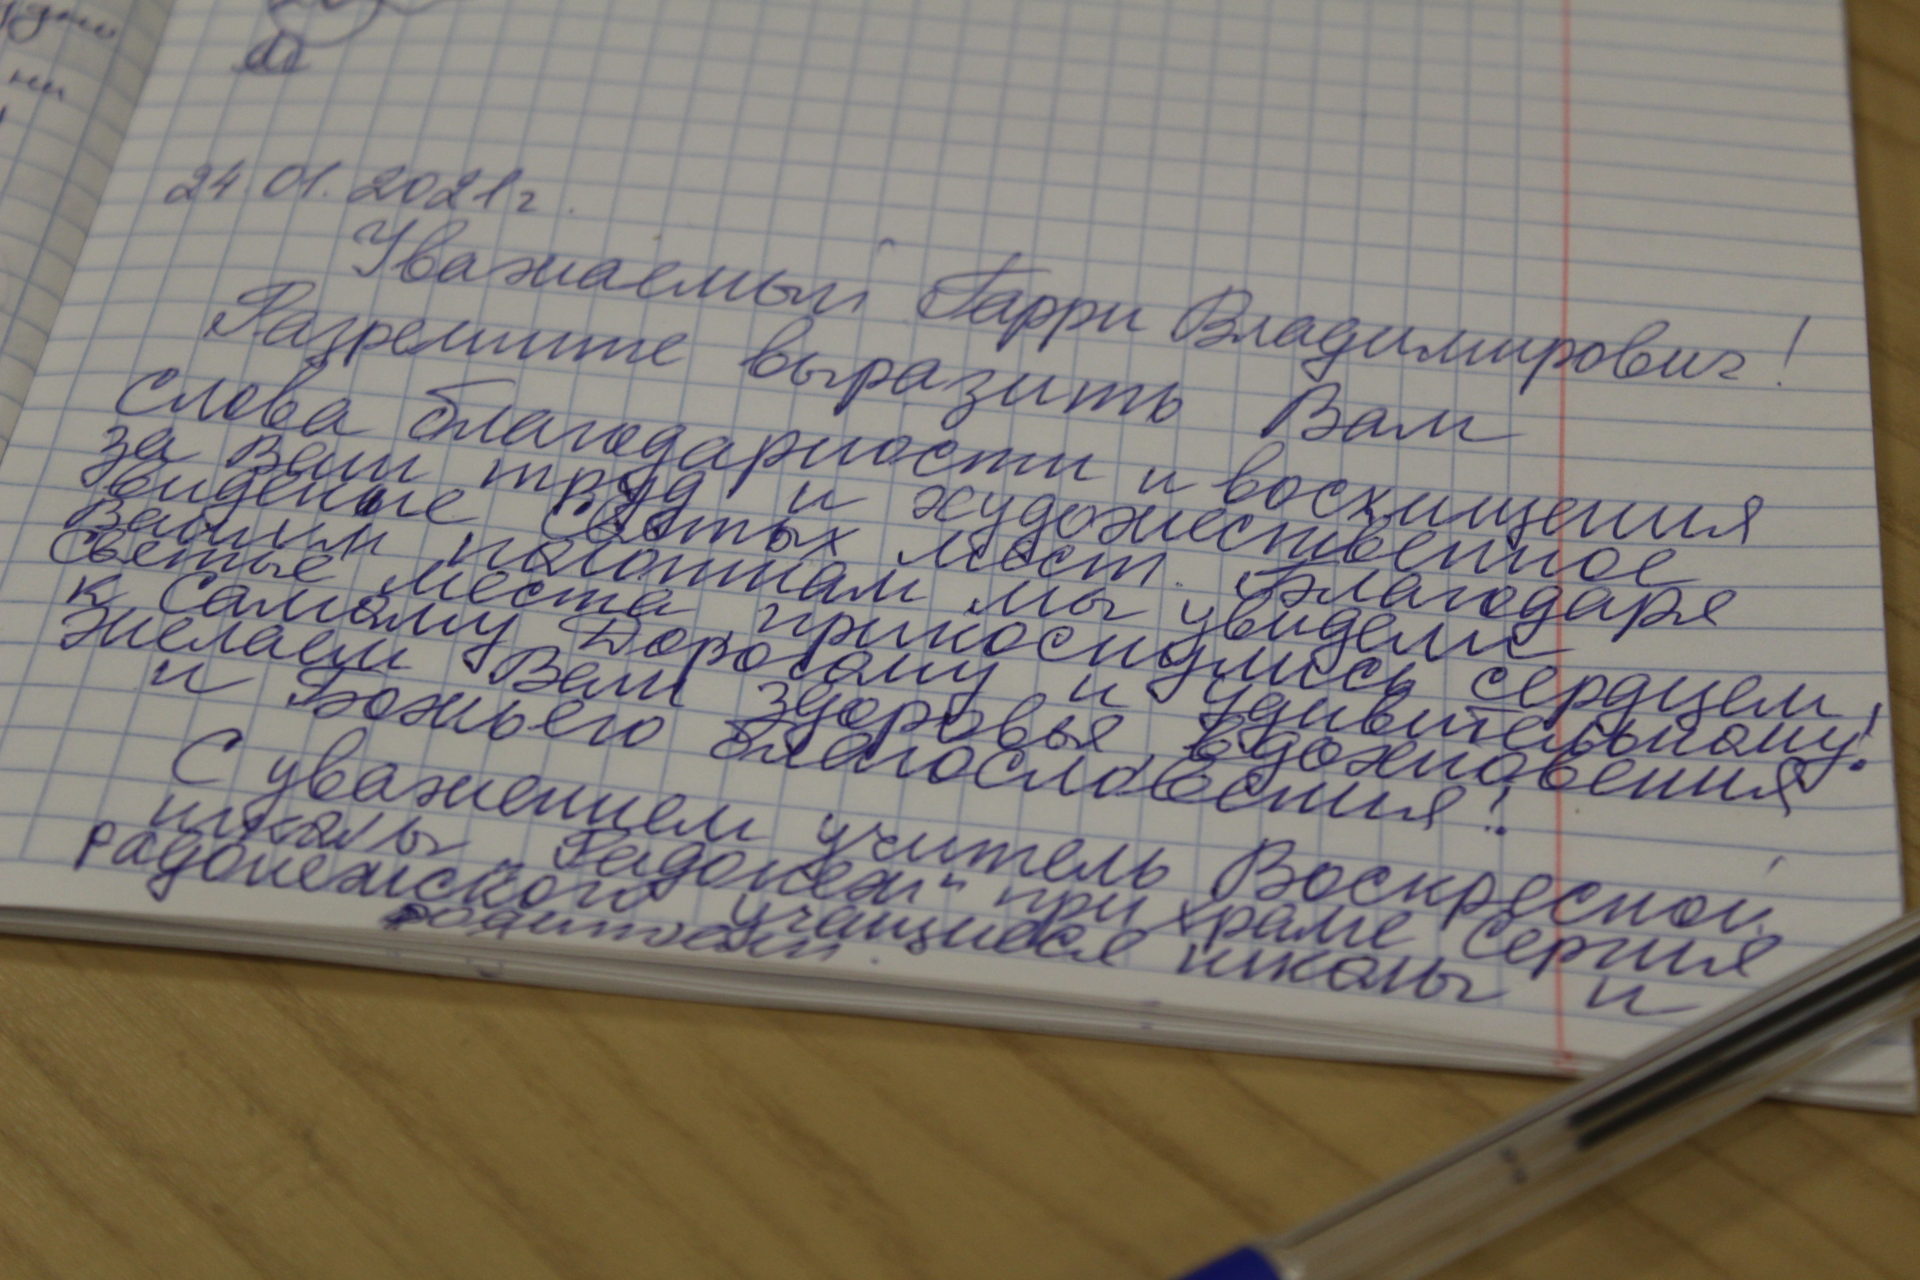 24.01.2021г.
Уважаемый Гарри Владимирович!
Разрешите выразить Вам
слова благодарности и восхищения
за Ваш труд и художественное
видение Святых мест. Благодаря
Вашим полотнам мы увидели
Святые места прикоснулись сердцем
к Самому Дорогому и удивительному!
Желаем Вам здоровья, вдохновения
и Божьего благословения!
С уважением учитель Воскресной
школы "Радонеж" при храме Сергия
Радонежского учащиеся школы и
родители.